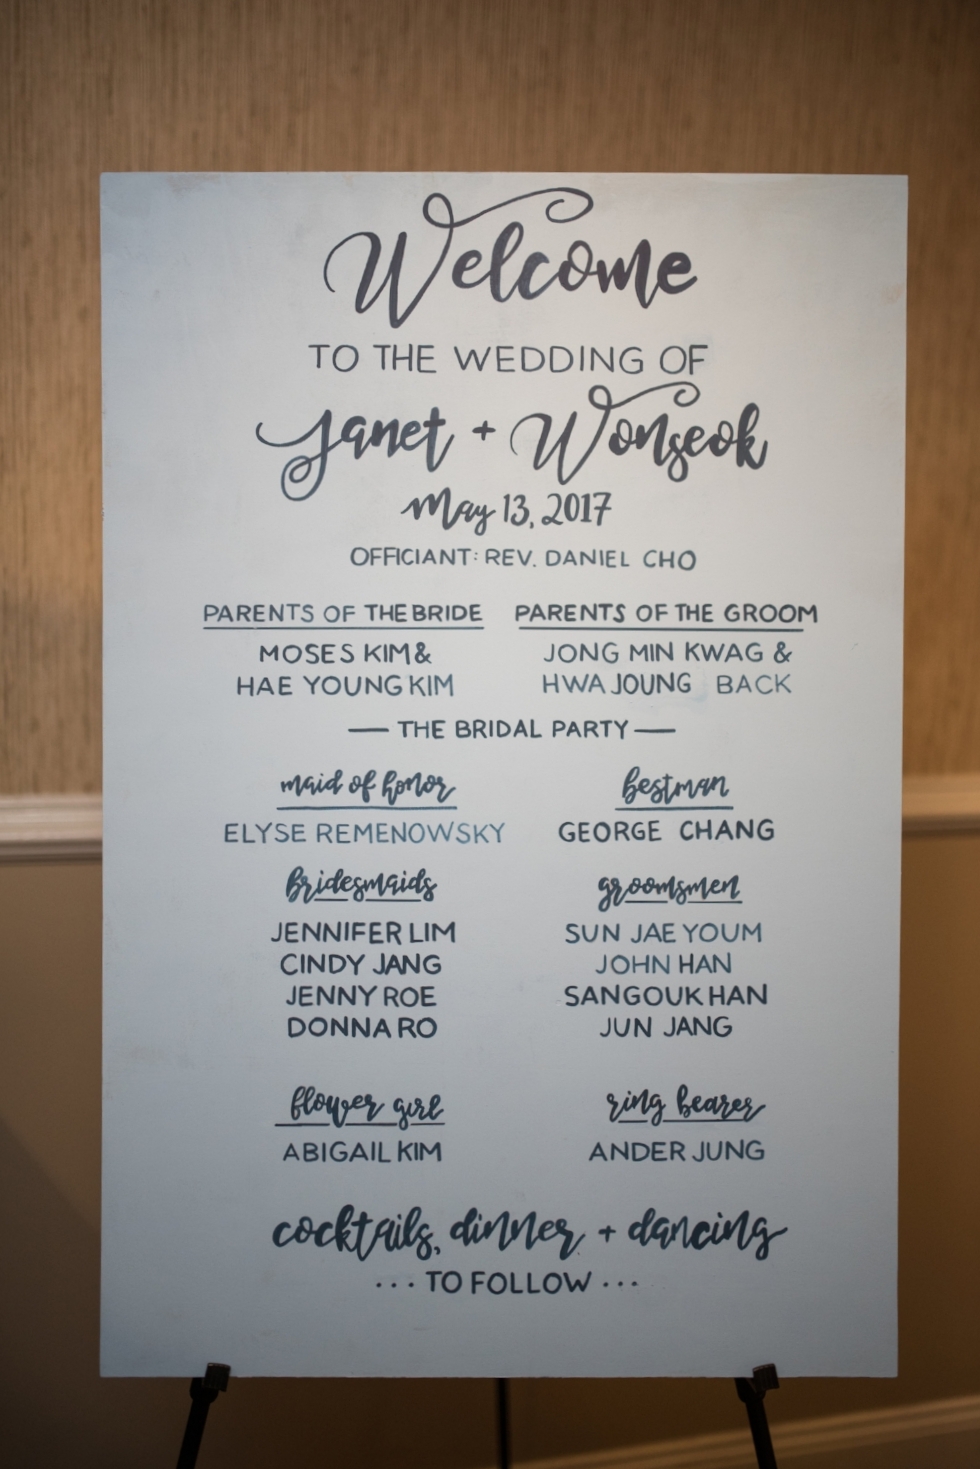 Welcome
TO THE WEDDING OF
Janet + Wonseok
May 13, 2017
OFFICIANT: REV. DANIEL CHO
PARENTS OF THE BRIDE
MOSES KIM &
HAE YOUNG KIM
PARENTS OF THE GROOM
JONG MIN KWAG &
HWA JOUNG BACK
— THE BRIDAL PARTY —
maid of honor
ELYSE REMENOWSKY
bestman
GEORGE CHANG
bridesmaids
JENNIFER LIM
CINDY JANG
JENNY ROE
DONNA RO
groomsmen
SUN JAE YOUM
JOHN HAN
SANGOUK HAN
JUN JANG
flower girl
ABIGAIL KIM
ring bearer
ANDER JUNG
cocktails, dinner + dancing
... TO FOLLOW ...